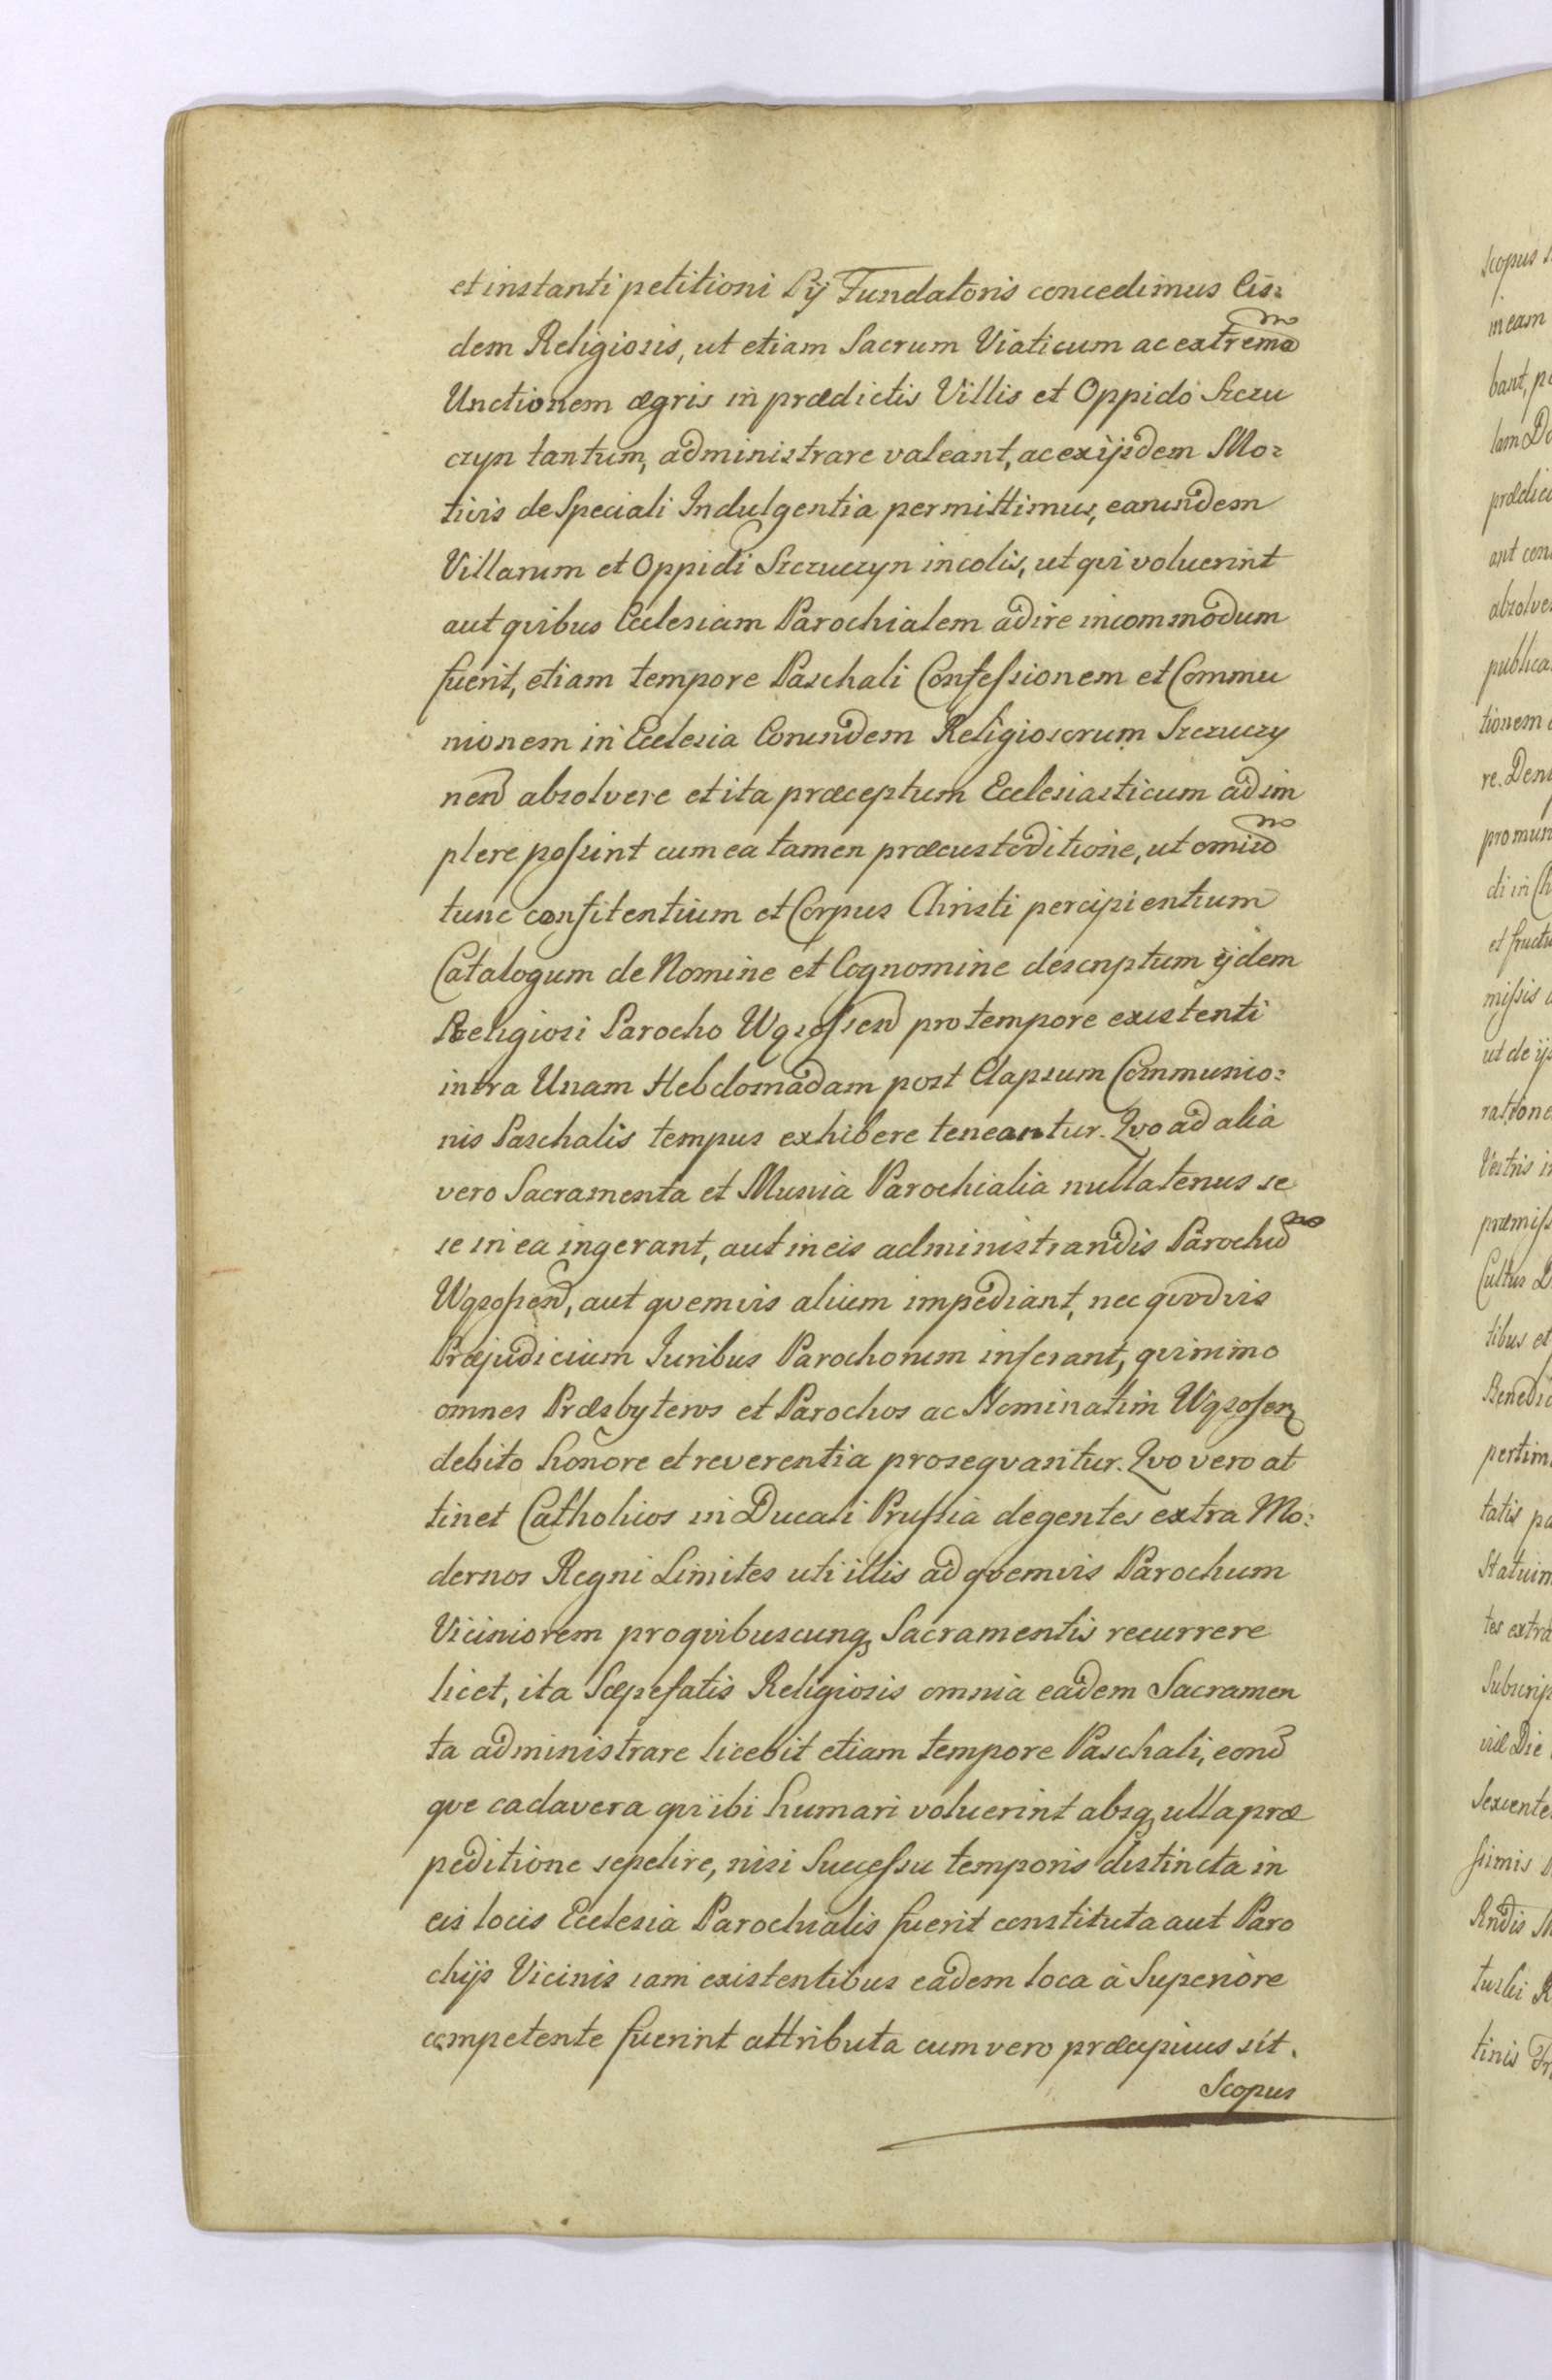 et instanti petitioni Pij Fundatoris concedimus Eis:
dem Religiosis, ut etiam Sacrum Viaticum ac extrema
Unctionem ægris in prædictis Villis et Oppido Szczu
czyn tantum, administrare valeant, ac ex ijsdem Mo:
tivis de Speciali Indulgentia permittimus, earundem
Villarum et Oppidi Szczuczyn incolis, ut qvi voluerint
aut qvibus Ecclesiam Parochialem adire incommodum
fuerit, etiam tempore Paschali Confessionem et Commu
nionem in Ecclesia Eorundem Religiosorum Szczuczy
nen absolvere et ita præceptum Ecclesiasticum adim
plere possint cum ea tamen præcustoditione, ut omiu
tunc confitentium et Corpus Christi percipientium
Catalogum de Nomine et Cognomine descriptum ijdem
Religiosi Parocho Wąsossen pro tempore existenti
intra Unam Hebdomadam post Elapsum Communio:
nis Paschalis tempus exhibere teneantur. Qvo ad alia
vero Sacramenta et Munia Parochialia nullatenus se
se in ea ingerant, aut in eis administrandis Parochu
Wąsossen, aut qvemvis alium impediant, nec qvodvis
Præjudicium Juribus Parochorum inferant, qvinimo
omnes Præsbyteros et Parochos ac Nominatim Wąsosen
debito honore et reverentia proseqvantur. Qvo vero at
tinet Catholicos in Ducali Prussia degentes extra Mo:
dernos Regni Limites uti illis ad qvemvis Parochum
Viciniorem pro qvibuscunq Sacramentis recurrere
licet, ita Sæpefatis Religiosis omnia eadem Sacramen
ta administrare licebit etiam tempore Paschali, eorud
qve cadavera qvi ibi humari voluerint absq ulla præ
peditione sepelire, nisi Successu temporis distincta in
eis locis Ecclesia Parochialis fuerit constituta aut Paro
chijs Vicinis iam existentibus eadem loca à Superiore
competente fuerint attributa cum vero præcipuus sit.
Scopus